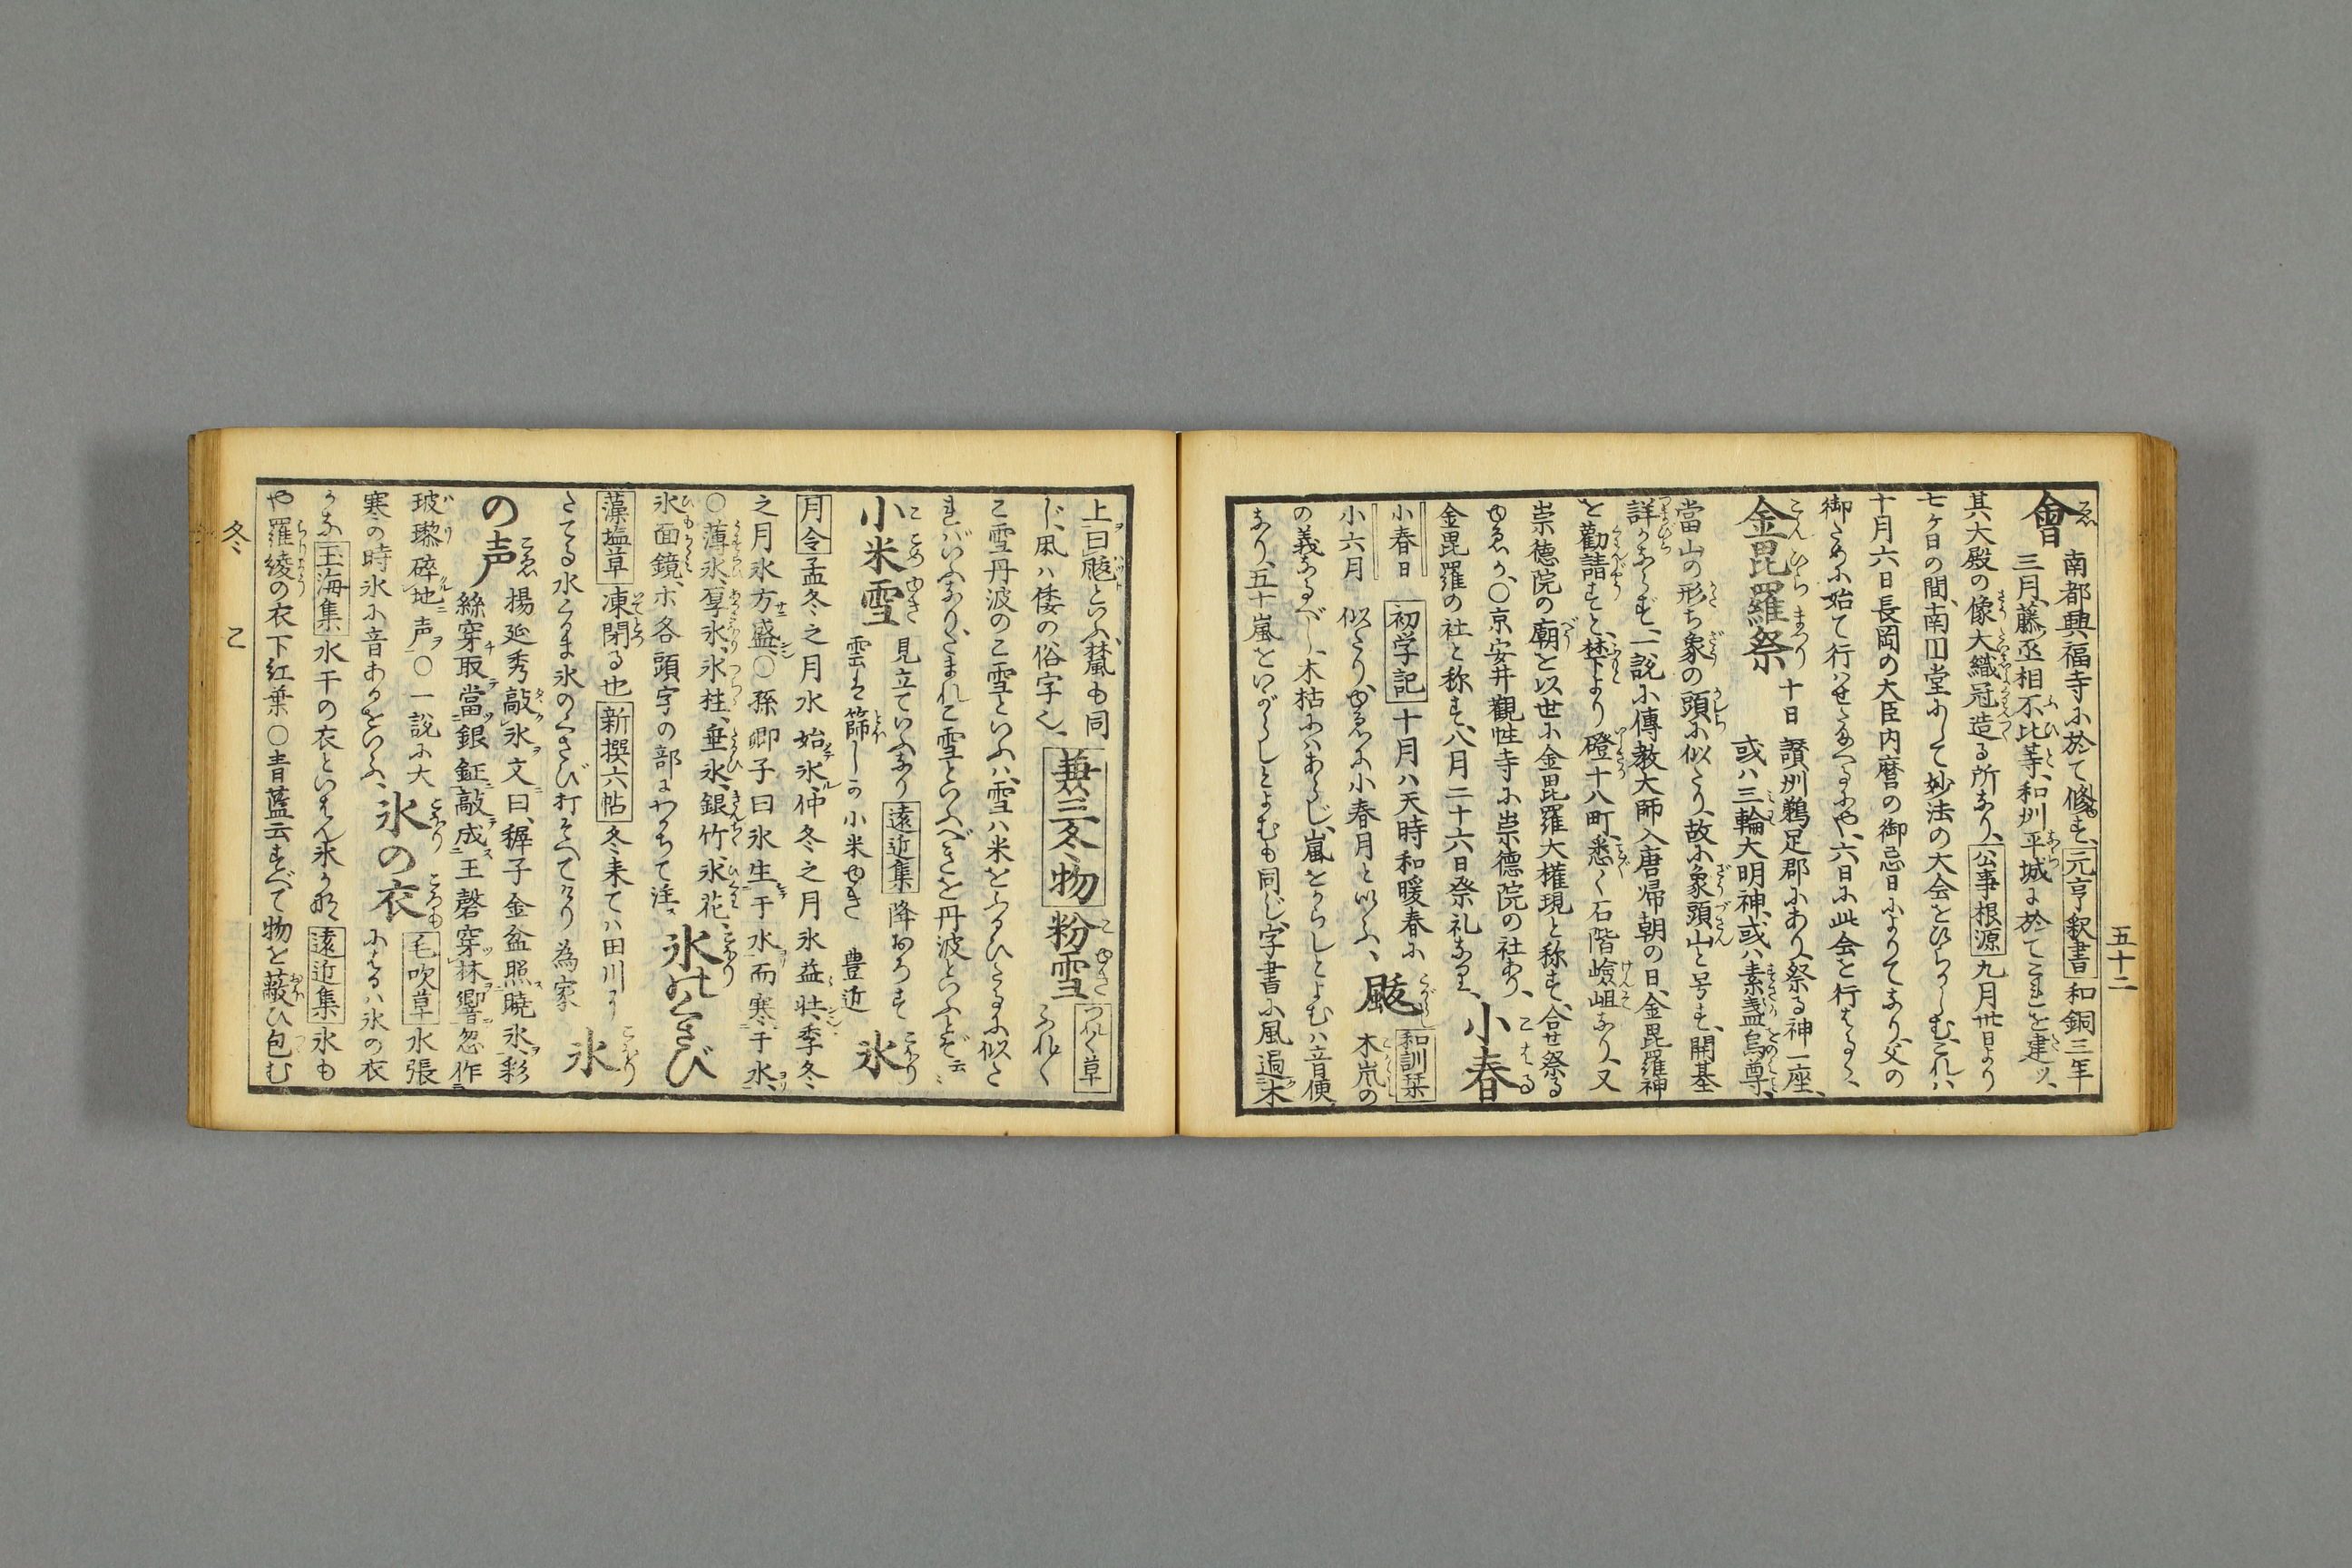 五十二
會 南都興福寺に於て修す、元亨釈書和銅三年
三月、藤丞相不比等、和州平城に於てこれを建ッ、
其大殿の像大織冠造る所なり、公事根源九月卅日より
七ヶ日の間、南円堂にして妙法の大会をひらかしむ、これハ
十月六日長岡の大臣内麿の御忌日によりてなり、父の
御ために始て行ハせ給へるにや、六日に此会を行はるゝ、
金毘羅祭 十日 讃州鵜足郡にあり、祭る神一座、
或ハ三輪大明神、或ハ素盞烏尊、
當山の形ち象の頭に似たり、故に象頭山と号す、開基
詳かならず、一説に傳教大師入唐帰朝の日、金毘羅神
を勧請すと、梺より磴十八町、悉く石階嶮岨なり、又
崇徳院の廟を以世に金毘羅大権現と称す、合せ祭る
ゆゑか、○京安井觀性寺に崇徳院の社あり、
金毘羅の社と称す、八月二十六日祭礼なり、 小春
小春日 初学記 十月ハ天時和暖春に
小六月 似たり、ゆゑに小春月と以ふ、 颰 和訓栞 木嵐の
の義なるべし、木枯にハあらじ、嵐をからしとよむハ音便
なり、五十嵐をいがらしとよむも同じ、字書に風過木
上曰颰といふ、㯮も同
じ、凩ハ倭の俗字也、 兼三冬物 粉雪 つれ〲草 ふれ〱
こ雪丹波のこ雪といふハ、雪ハ米をふるひたるに似た
ればいふなり、たまれこ雪といふべきを丹波といふとぞ云〻
小米雪 見立ていふなり 遠近集 降おろす
雲を篩しか小米ゆき 豊近 氷
月令 孟冬之月水始氷、仲冬之月氷益壮、季冬
之月氷方盛、○孫卿子曰氷生于水而寒于水、
○薄氷、厚氷、氷柱、垂氷、銀竹、氷花、
氷面鏡、ホ各頭字の部にわかちて注ス 氷のくさび
藻塩草 凍閉る也 新撰六帖 冬来てハ田川に
たてる水ぐるま氷のくさび打そへてけり 為家 氷
の声 揚延秀敲氷文曰、穉子金盆照曉氷、彩
絲穿取當銀鉦、敲成玉磬穿林響、忽作
玻瓈碎地声○一説に大
寒の時氷に音あるをいふ、 氷の衣 毛吹草 水張
にするハ氷の衣
かな 玉海集 水干の衣といはん氷かな 遠近集 氷も
や羅綾の衣下紅葉○青藍云すべて物を蔽ひ包む
冬 こ